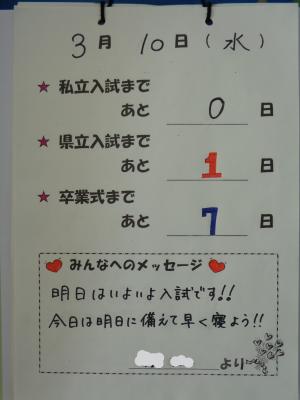 3月 10日(水)
★ 私立入試まで
あと 0 日
★ 県立入試まで
あと 1 日
★ 卒業式まで
あと 7 日
みんなへのメッセージ
明日はいよいよ入試です!!
今日は明日に備えて早く寝よう!!
より